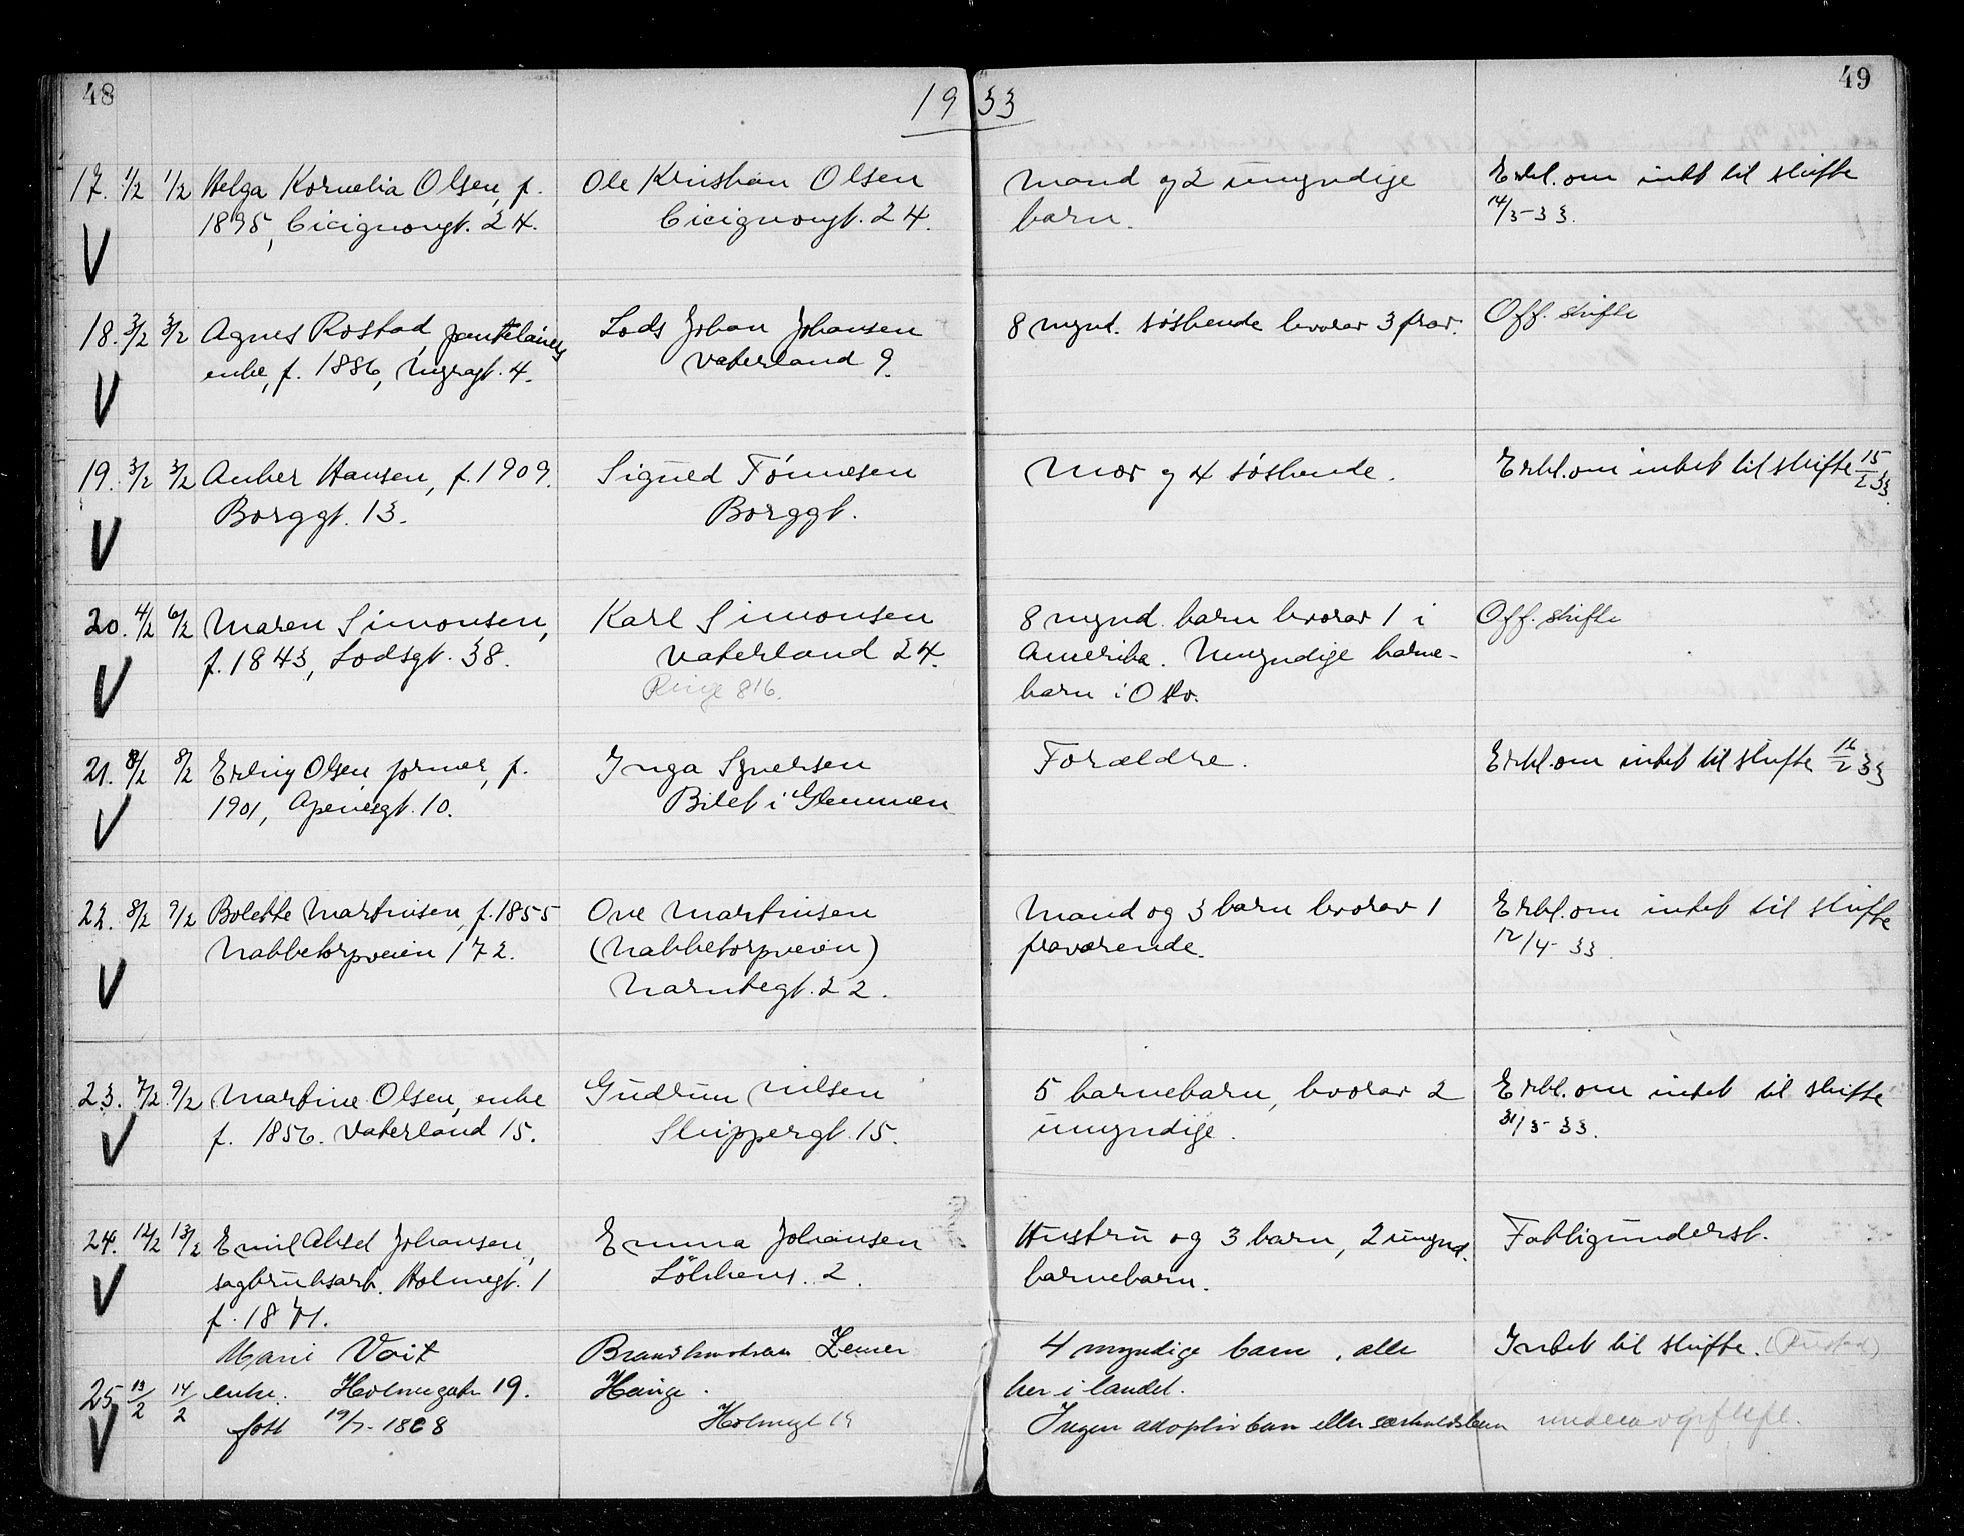 48
49
1933
17. 1/2 1/2 Helga Kornelia Olsen, f.
1895, Cicignongt. 24.
Ole Kristian Olsen
Cicignongt. 24.
Mand og 2 umyndige
barn.
Erkl. om intet til skifte
14/3-33.
18. 3/2 3/2 Agnes Rostad, pantelåners
enke, f. 1886, Nygt. 4.
Lods Johan Johansen
Vaterland 9.
8 mynd. søskende hvorav 3 frav.
Off. skifte
19. 3/2 3/2 Anker Hansen, f. 1909.
Borggt. 13.
Sigurd Tønnesen
Borggt.
Mor og 4 søskende.
Erkl. om intet til skifte 15/2 33.
20. 4/2 6/2 Maren Simonsen,
f. 1843, Lodsgt. 38.
Karl Simonsen
Vaterland 24.
Ringe 816.
8 mynd. barn hvorav 1 i
Amerika. Umyndige barne-
barn i Oslo.
Off. skifte
21. 8/2 8/2 Erling Olsen, former, f.
1901, Apenesgt. 10.
Inga Syversen
Bilet i Glemmen
Forældre.
Erkl. om intet til skifte 16/2 33
22. 8/2 9/2 Bolette Martinsen, f. 1855
Nabbetorpveien 172.
Ove Martinsen
(Nabbetorpveien)
Narntegt. 22.
Mand og 3 barn hvorav 1
fraværende.
Erkl. om intet til skifte
12/4-33.
23. 7/2 9/2 Martine Olsen, enke
f. 1856. Vaterland 15.
Gudrun Nilsen
Skippergt. 15.
5 barnebarn, hvorav 2
umyndige.
Erkl. om intet til skifte
31/3-33.
24. 12/2 13/2 Emil Aksel Johansen,
sagbruksarb. Holmegt. 1
f. 1871.
Emma Johansen
Løkkens. 2.
Hustru og 3 barn, 2 umynd.
barnebarn.
Fattigunderst.
Marie Voit
25 13/2 14/2 enke. Holmegaten 19.
født 19/7-1868
Brandkonstabel
Hauge.
Holmegt 19
4 myndige barn, alle
her i landet.
Ingen adoptivbarn eller særkuldsbarn
Intet til skifte.